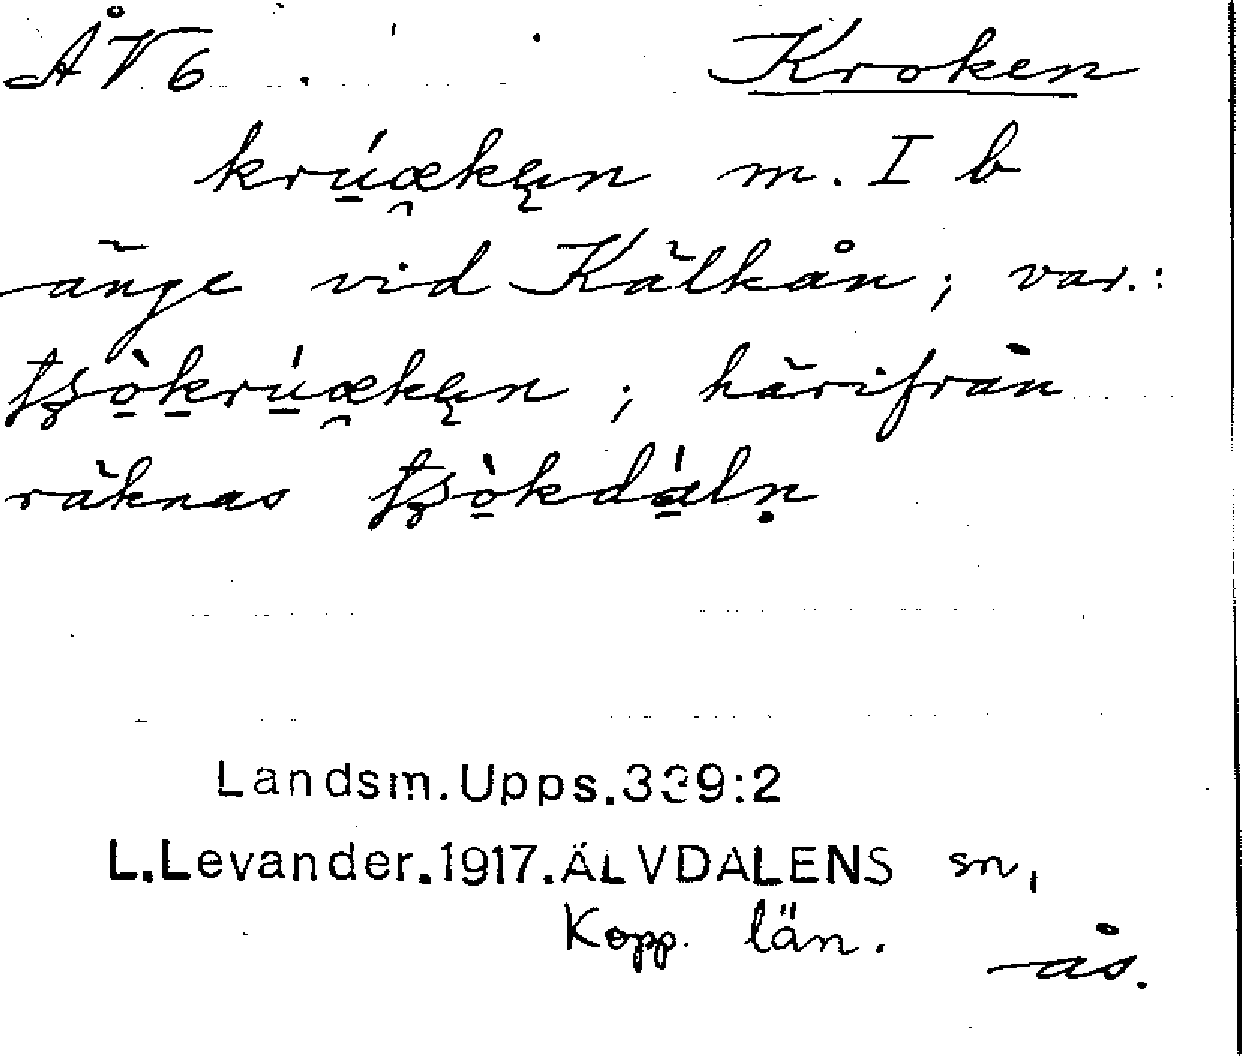 ÅV6 Kroken
krúækęn m. I b
änge vid Kälkån; var.:
tʂòkrúækęn; härifrån
räknas tʂòkdáln̥
Landsm.Upps.339:2
L.Levander.1917.ÄLVDALENS sn,
Kopp. län.
ås.